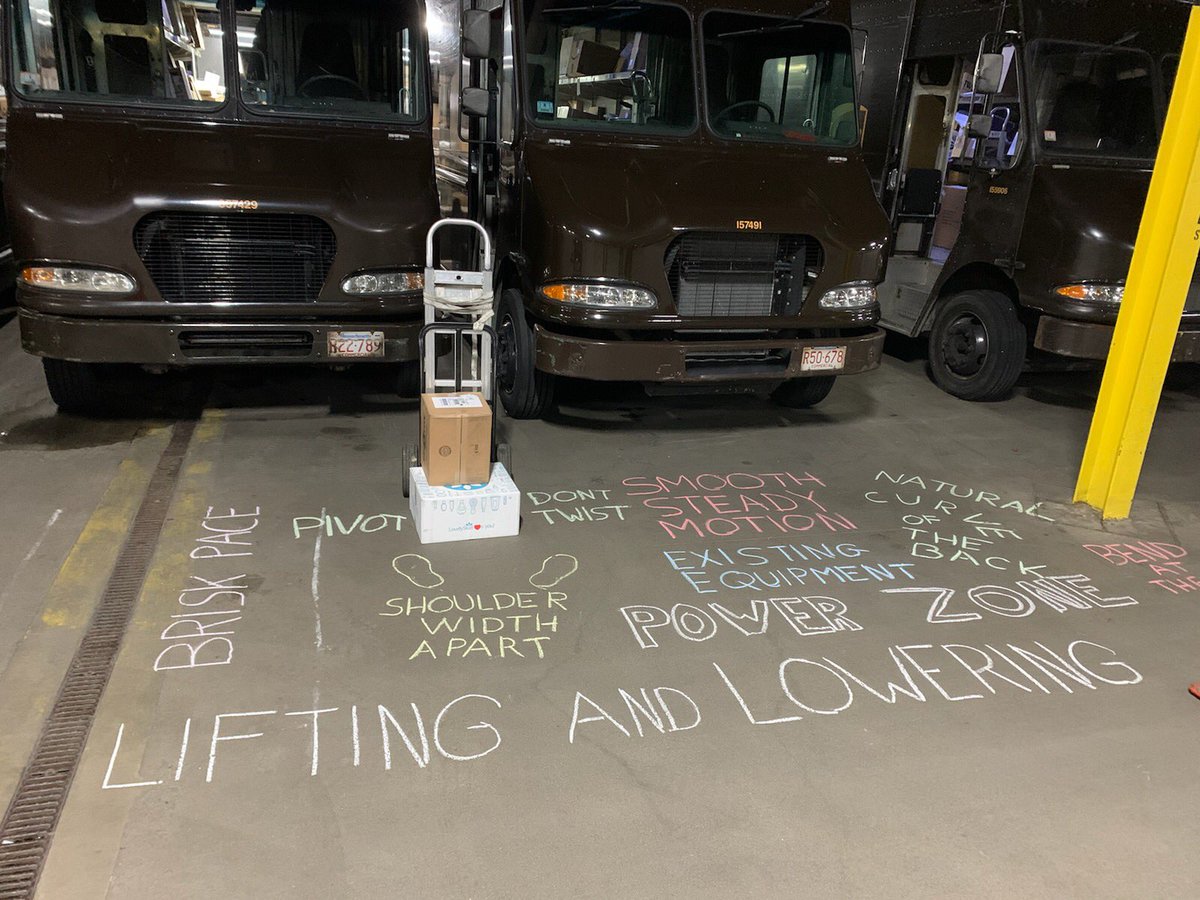 157429
157491
155905
R22·789
R50·678
BRISK PACE
PIVOT
DONT
TWIST
SMOOTH
STEADY
MOTION
NATURAL
CURL
OF
THE
BACK
EXISTING
EQUIPMENT
BEND
AT
THE
SHOULDER
WIDTH
APART
POWER ZONE
LIFTING AND LOWERING